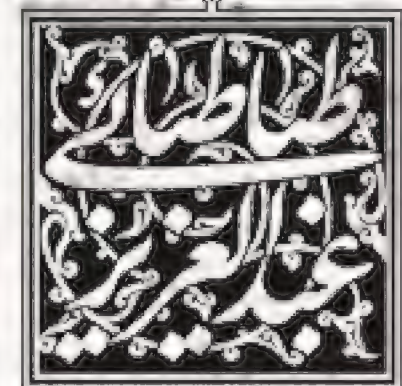 طباطبائي
عبد العزيز